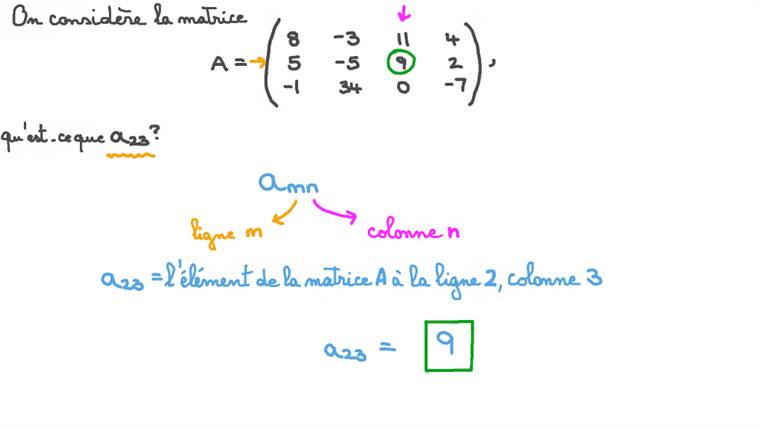 On considère la matrice
A = ( 8 -3 11 4
5 -5 9 2
-1 34 0 -7 ) ,
qu'est-ce que a₂₃ ?
aₘₙ
ligne m
colonne n
a₂₃ = l'élément de la matrice A à la ligne 2, colonne 3
a₂₃ = 9